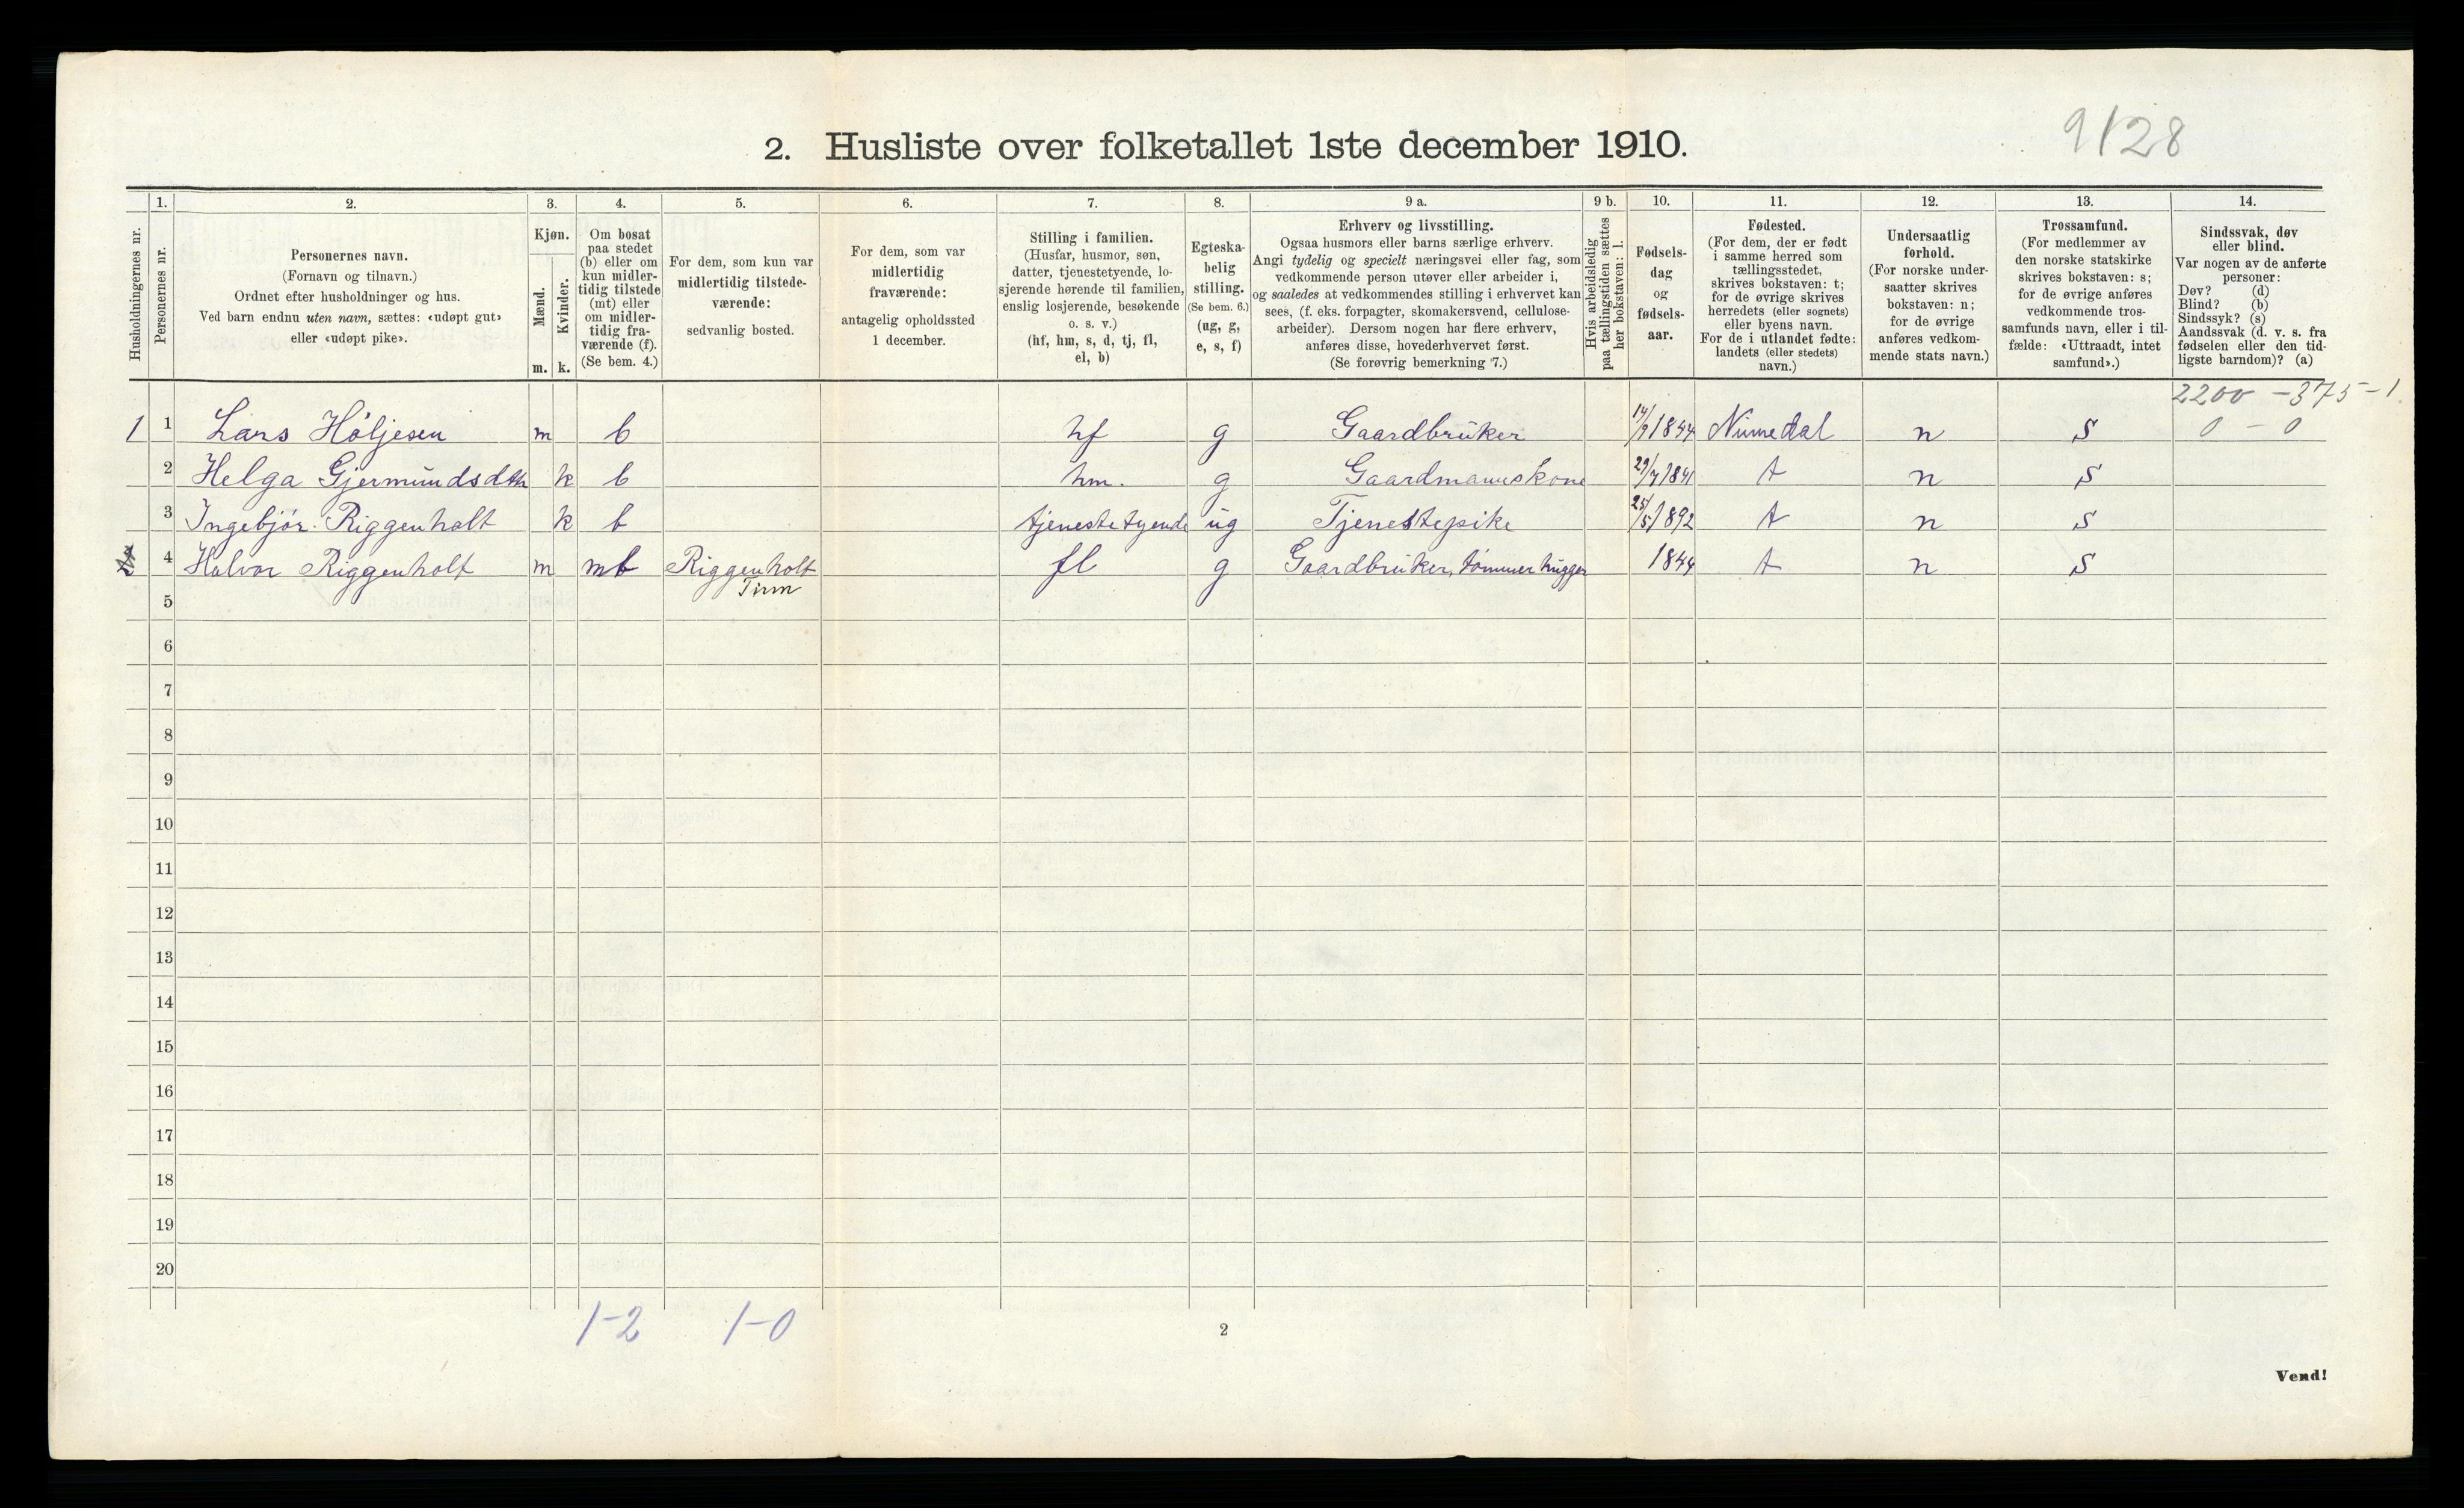 9/28
2. Husliste over folketallet 1ste december 1910.
Husholdningernes nr.
1.
Personernes nr.
2.
Personernes navn.
(Fornavn og tilnavn.)
Ordnet efter husholdninger og hus.
Ved barn endnu uten navn, sættes: «udøpt gut»
eller «udøpt pike».
3.
Kjøn.
Mænd.
Kvinder.
m. k.
4.
Om bosat
paa stedet
(b) eller om
kun midler-
tidig tilstede
(mt) eller
om midler-
tidig fra-
værende (f).
(Se bem. 4.)
5.
For dem, som kun var
midlertidig tilstede-
værende:
sedvanlig bosted.
6.
For dem, som var
midlertidig
fraværende:
antagelig opholdssted
1 december.
7.
Stilling i familien.
(Husfar, husmor, søn,
datter, tjenestetyende, lo-
sjerende hørende til familien,
enslig losjerende, besøkende
o. s. v.)
(hf, hm, s, d, tj, fl,
el, b)
8.
Egteska-
belig
stilling.
(Se bem. 6.)
(ug, g,
e, s, f)
9 a.
Erhverv og livsstilling.
Ogsaa husmors eller barns særlige erhverv.
Angi tydelig og specielt næringsvei eller fag, som
vedkommende person utøver eller arbeider i,
og saaledes at vedkommendes stilling i erhvervet kan
sees, (f. eks. forpagter, skomakersvend, cellulose-
arbeider). Dersom nogen har flere erhverv,
anføres disse, hovederhvervet først.
(Se forøvrig bemerkning 7.)
9 b.
Hvis arbeidsledig
paa tællingstiden sættes
her bokstaven: l.
10.
Fødsels-
dag
og
fødsels-
aar.
11.
Fødested.
(For dem, der er født
i samme herred som
tællingsstedet,
skrives bokstaven: t;
for de øvrige skrives
herredets (eller sognets)
eller byens navn.
For de i utlandet fødte:
landets (eller stedets)
navn.)
12.
Undersaatlig
forhold.
(For norske under-
saatter skrives
bokstaven: n;
for de øvrige
anføres vedkom-
mende stats navn.)
13.
Trossamfund.
(For medlemmer av
den norske statskirke
skrives bokstaven: s;
for de øvrige anføres
vedkommende tros-
samfunds navn, eller i til-
fælde: «Uttraadt, intet
samfund».)
14.
Sindssvak, døv
eller blind.
Var nogen av de anførte
personer:
Døv? (d)
Blind? (b)
Sindssyk? (s)
Aandssvak (d. v. s. fra
fødselen eller den tid-
ligste barndom)? (a)
2200 - 375 - 1
1 1 Lars Höljesen m b hf g Gaardbruker 1844 Numedal n s 0 - 0
2 Helga Gjermundsdth k b hm. g Gaardmannskone 29/7 1841 t n s
3 Ingebjör. Riggenholt k b tjenestetyende ug Tjenestepike 25/5 1892 t n s
2 4 Halvor Riggenholt m mt Riggenholt fl g Gaardbruker, tömmerhugger 1844 t n s
Tinn
5
6
7
8
9
10
11
12
13
14
15
16
17
18
19
20
1-2 1-0
2
Vend!